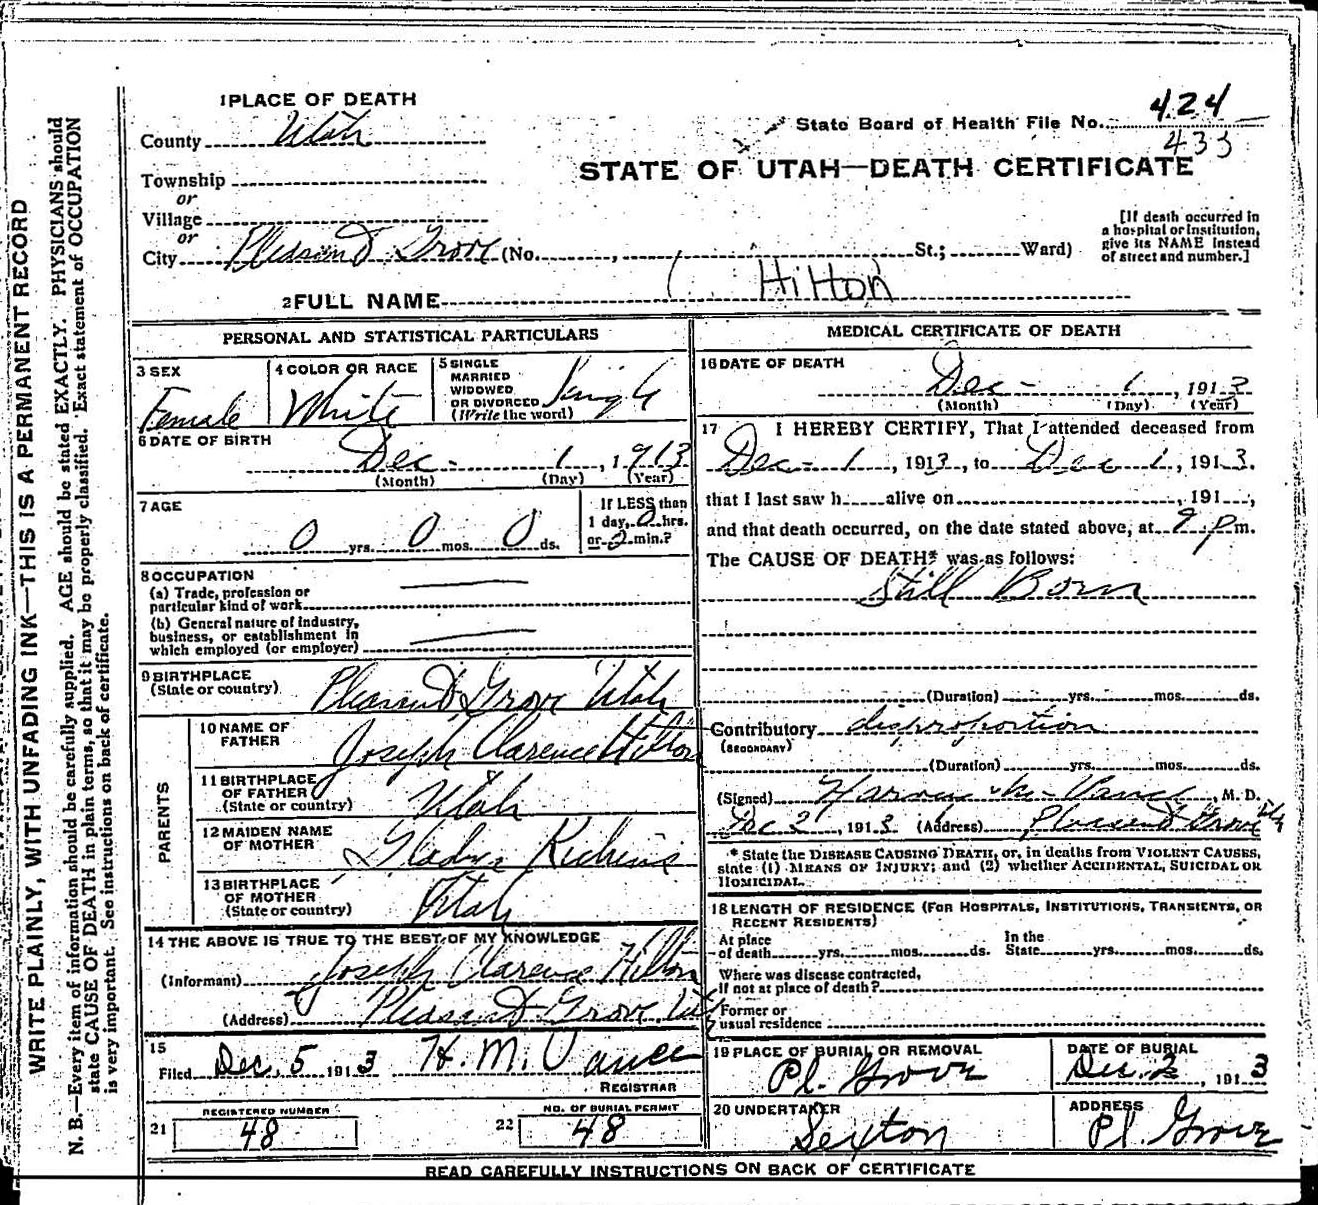 WRITE PLAINLY, WITH UNFADING INK—THIS IS A PERMANENT RECORD
N. B.—Every item of information should be carefully supplied. AGE should be stated EXACTLY. PHYSICIANS should
state CAUSE OF DEATH in plain terms, so that it may be properly classified. Exact statement of OCCUPATION
is very important. See instructions on back of certificate.
1 PLACE OF DEATH
County Utah
Township
or
Village
or
City Pleasant Grove (No. , St.; Ward)
State Board of Health File No. 424
433
STATE OF UTAH—DEATH CERTIFICATE
[If death occurred in
a hospital or institution,
give its NAME instead
of street and number.]
2 FULL NAME ( Hilton
PERSONAL AND STATISTICAL PARTICULARS
3 SEX
Female
4 COLOR OR RACE
White
5 SINGLE
MARRIED
WIDOWED
OR DIVORCED
(Write the word)
Single
6 DATE OF BIRTH
Dec - 1, 1913
(Month) (Day) (Year)
7 AGE
0 yrs. 0 mos. 0 ds.
If LESS than
1 day, 0 hrs.
or 2 min.?
8 OCCUPATION
(a) Trade, profession or
particular kind of work
(b) General nature of industry,
business, or establishment in
which employed (or employer)
9 BIRTHPLACE
(State or country)
Pleasant Grove Utah
PARENTS
10 NAME OF
FATHER
Joseph Clarence Hilton
11 BIRTHPLACE
OF FATHER
(State or country)
Utah
12 MAIDEN NAME
OF MOTHER
Gladys Richins
13 BIRTHPLACE
OF MOTHER
(State or country)
Utah
14 THE ABOVE IS TRUE TO THE BEST OF MY KNOWLEDGE
(Informant) Joseph Clarence Hilton
(Address) Pleasant Grove Ut
15
Filed Dec. 5 1913 H. M. Vance
REGISTRAR
REGISTERED NUMBER
21 48
NO. OF BURIAL PERMIT
22 48
MEDICAL CERTIFICATE OF DEATH
16 DATE OF DEATH
Dec - 1, 1913
(Month) (Day) (Year)
17 I HEREBY CERTIFY, That I attended deceased from
Dec - 1, 1913, to Dec 1, 1913.
that I last saw h alive on , 191 ,
and that death occurred, on the date stated above, at 9 p m.
The CAUSE OF DEATH* was as follows:
Still Born
(Duration) yrs. mos. ds.
Contributory disproportion
(SECONDARY)
(Duration) yrs. mos. ds.
(Signed) Harvey M. Vance, M. D.
Dec 2, 1913 (Address) Pleasant Grove Utah
* State the DISEASE CAUSING DEATH, or, in deaths from VIOLENT CAUSES,
state (1) MEANS OF INJURY; and (2) whether ACCIDENTAL, SUICIDAL OR
HOMICIDAL.
18 LENGTH OF RESIDENCE (FOR HOSPITALS, INSTITUTIONS, TRANSIENTS, OR
RECENT RESIDENTS)
At place
of death yrs. mos. ds.
In the
State yrs. mos. ds.
Where was disease contracted,
if not at place of death?
Former or
usual residence
19 PLACE OF BURIAL OR REMOVAL
Pl. Grove
DATE OF BURIAL
Dec. 2, 1913
20 UNDERTAKER
Sexton
ADDRESS
Pl. Grove
READ CAREFULLY INSTRUCTIONS ON BACK OF CERTIFICATE